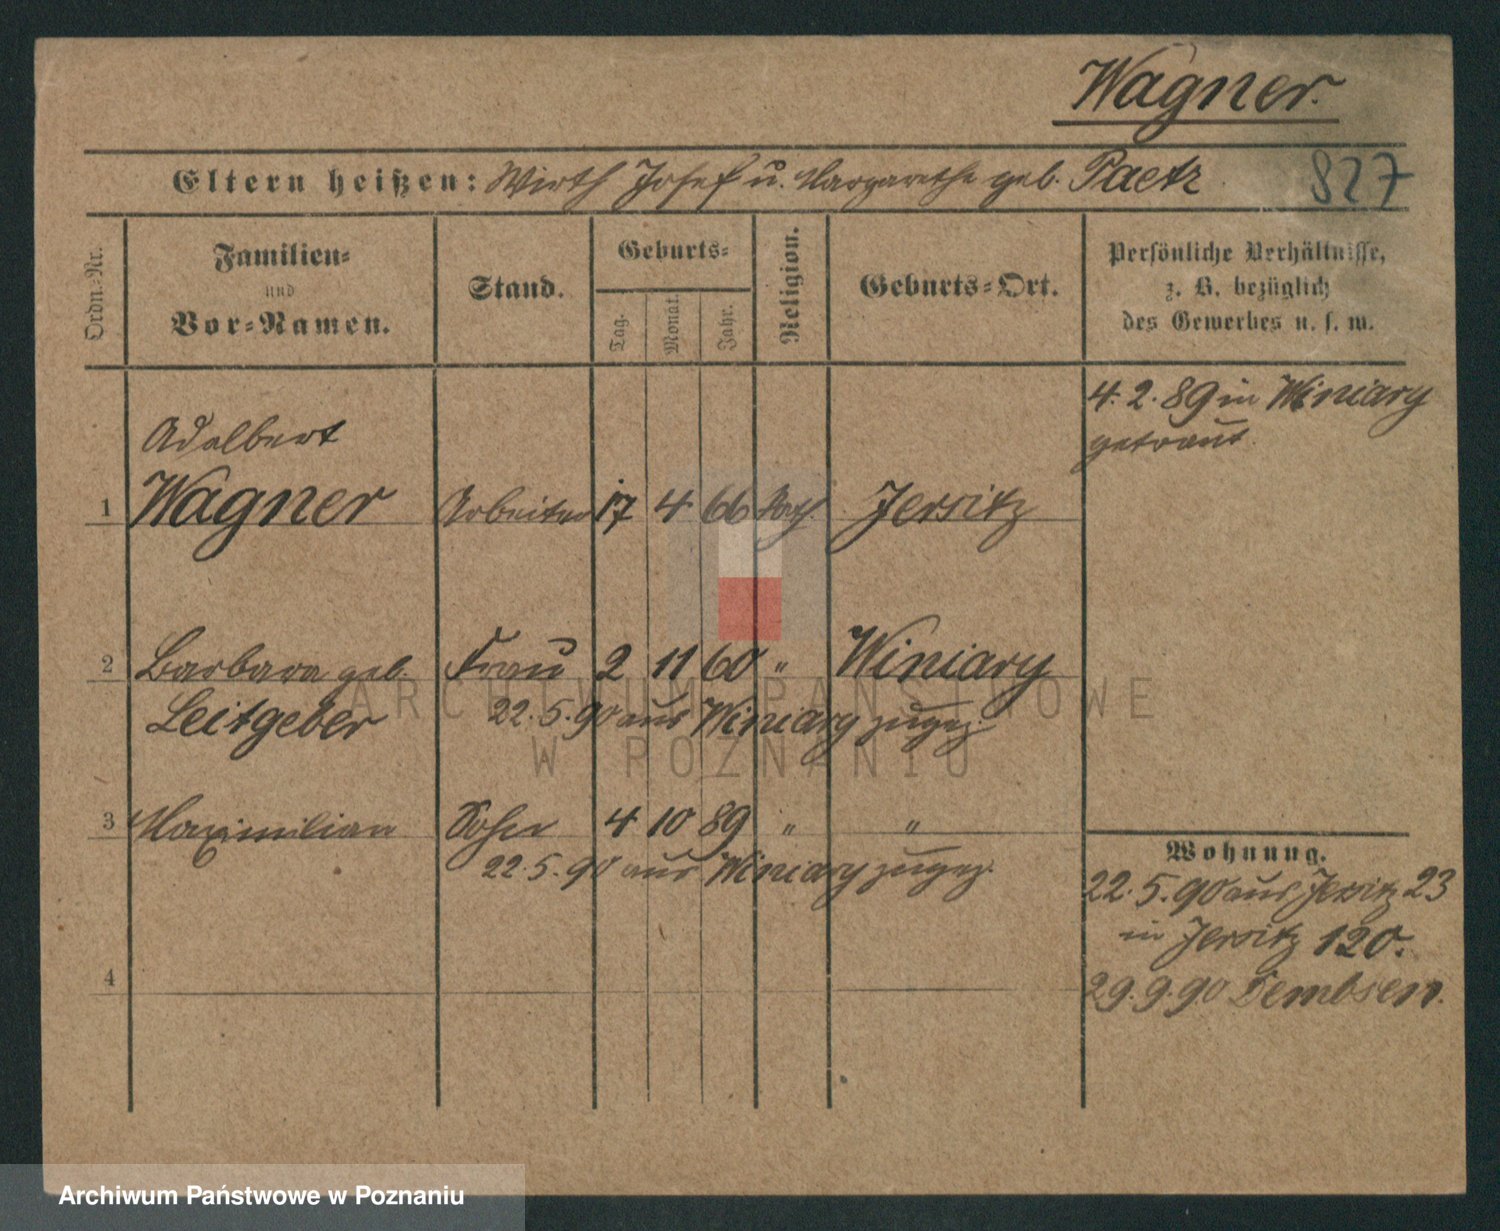 Wagner.
Eltern heißen: Wirth Josef u. Margarethe geb. Paetz
827
Ordn.-Nr.
Familien-
und
Vor-Namen.
Stand.
Geburts-
Tag.
Monat.
Jahr.
Religion.
Geburts-Ort.
Persönliche Verhältnisse,
z. B. bezüglich
des Gewerbes u. s. w.
4. 2. 89 in Winiary
getraut.
Adalbert
1 Wagner Arbeiter 17 4 66 Kath. Jersitz
2 Barbara geb. Frau 2 11 60 " Winiary
Leitgeber 22. 5. 90 aus Winiary zugez.
3 Maximilian Sohn 4 10 89 " "
22. 5. 90 aus Winiary zugez.
4
Wohnung.
22. 5. 90 aus Jersitz 23
in Jersitz 120.
29. 9. 90 Dembsen.
ARCHIWUM PAŃSTWOWE
W POZNANIU
Archiwum Państwowe w Poznaniu